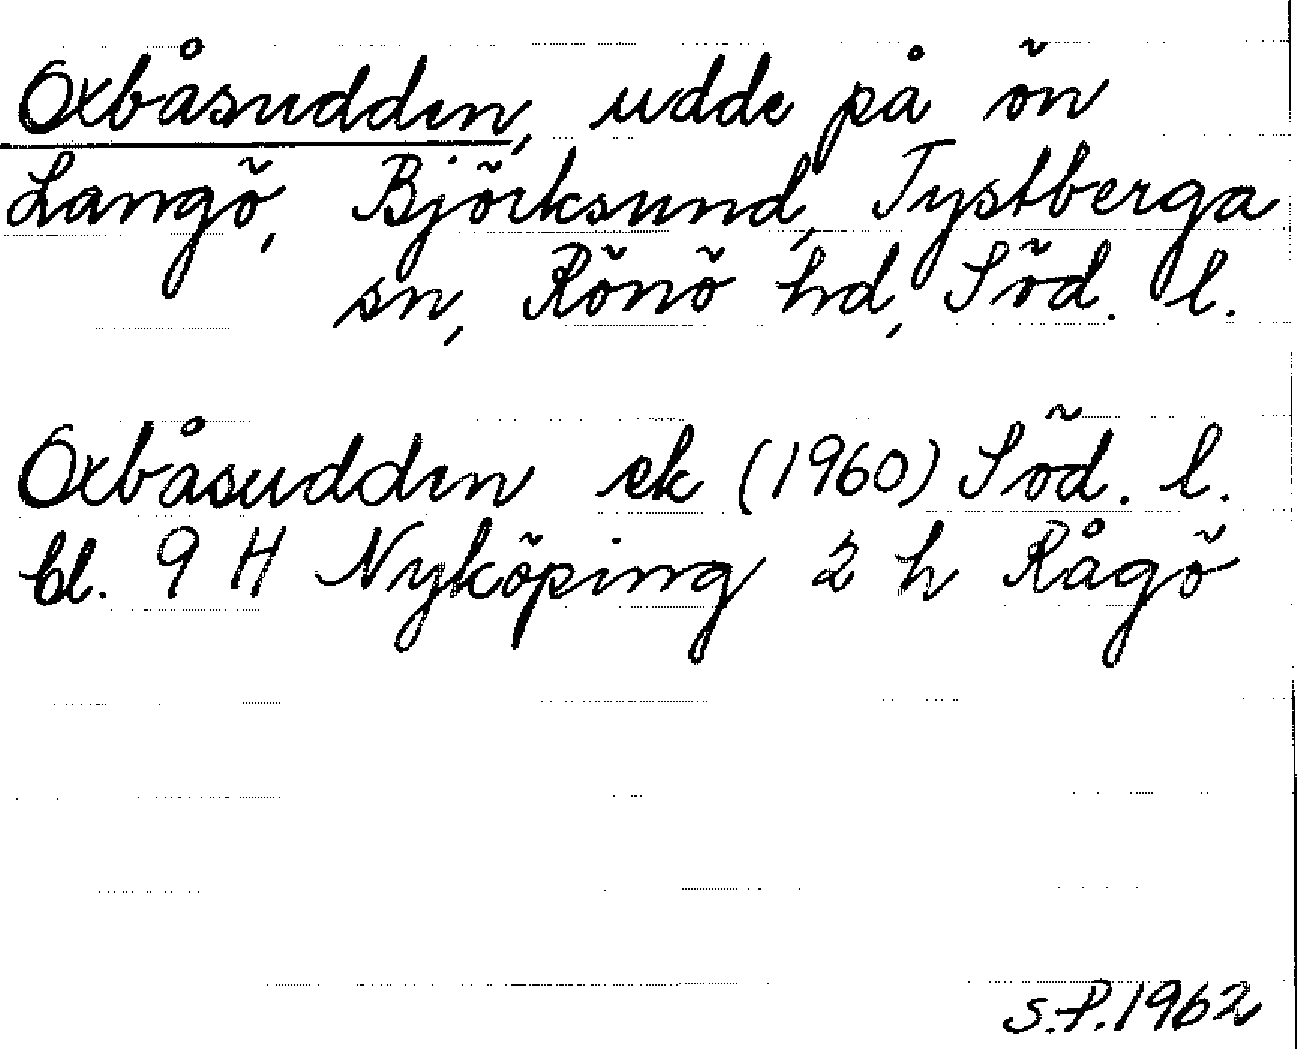 Oxbåsudden, udde på ön
Langö, Björksund, Tystberga
sn, Rönö hd, Söd. l.
Oxbåsudden ek (1960) Söd. l.
bl. 9 H Nyköping 2 h Rågö
S.P. 1962